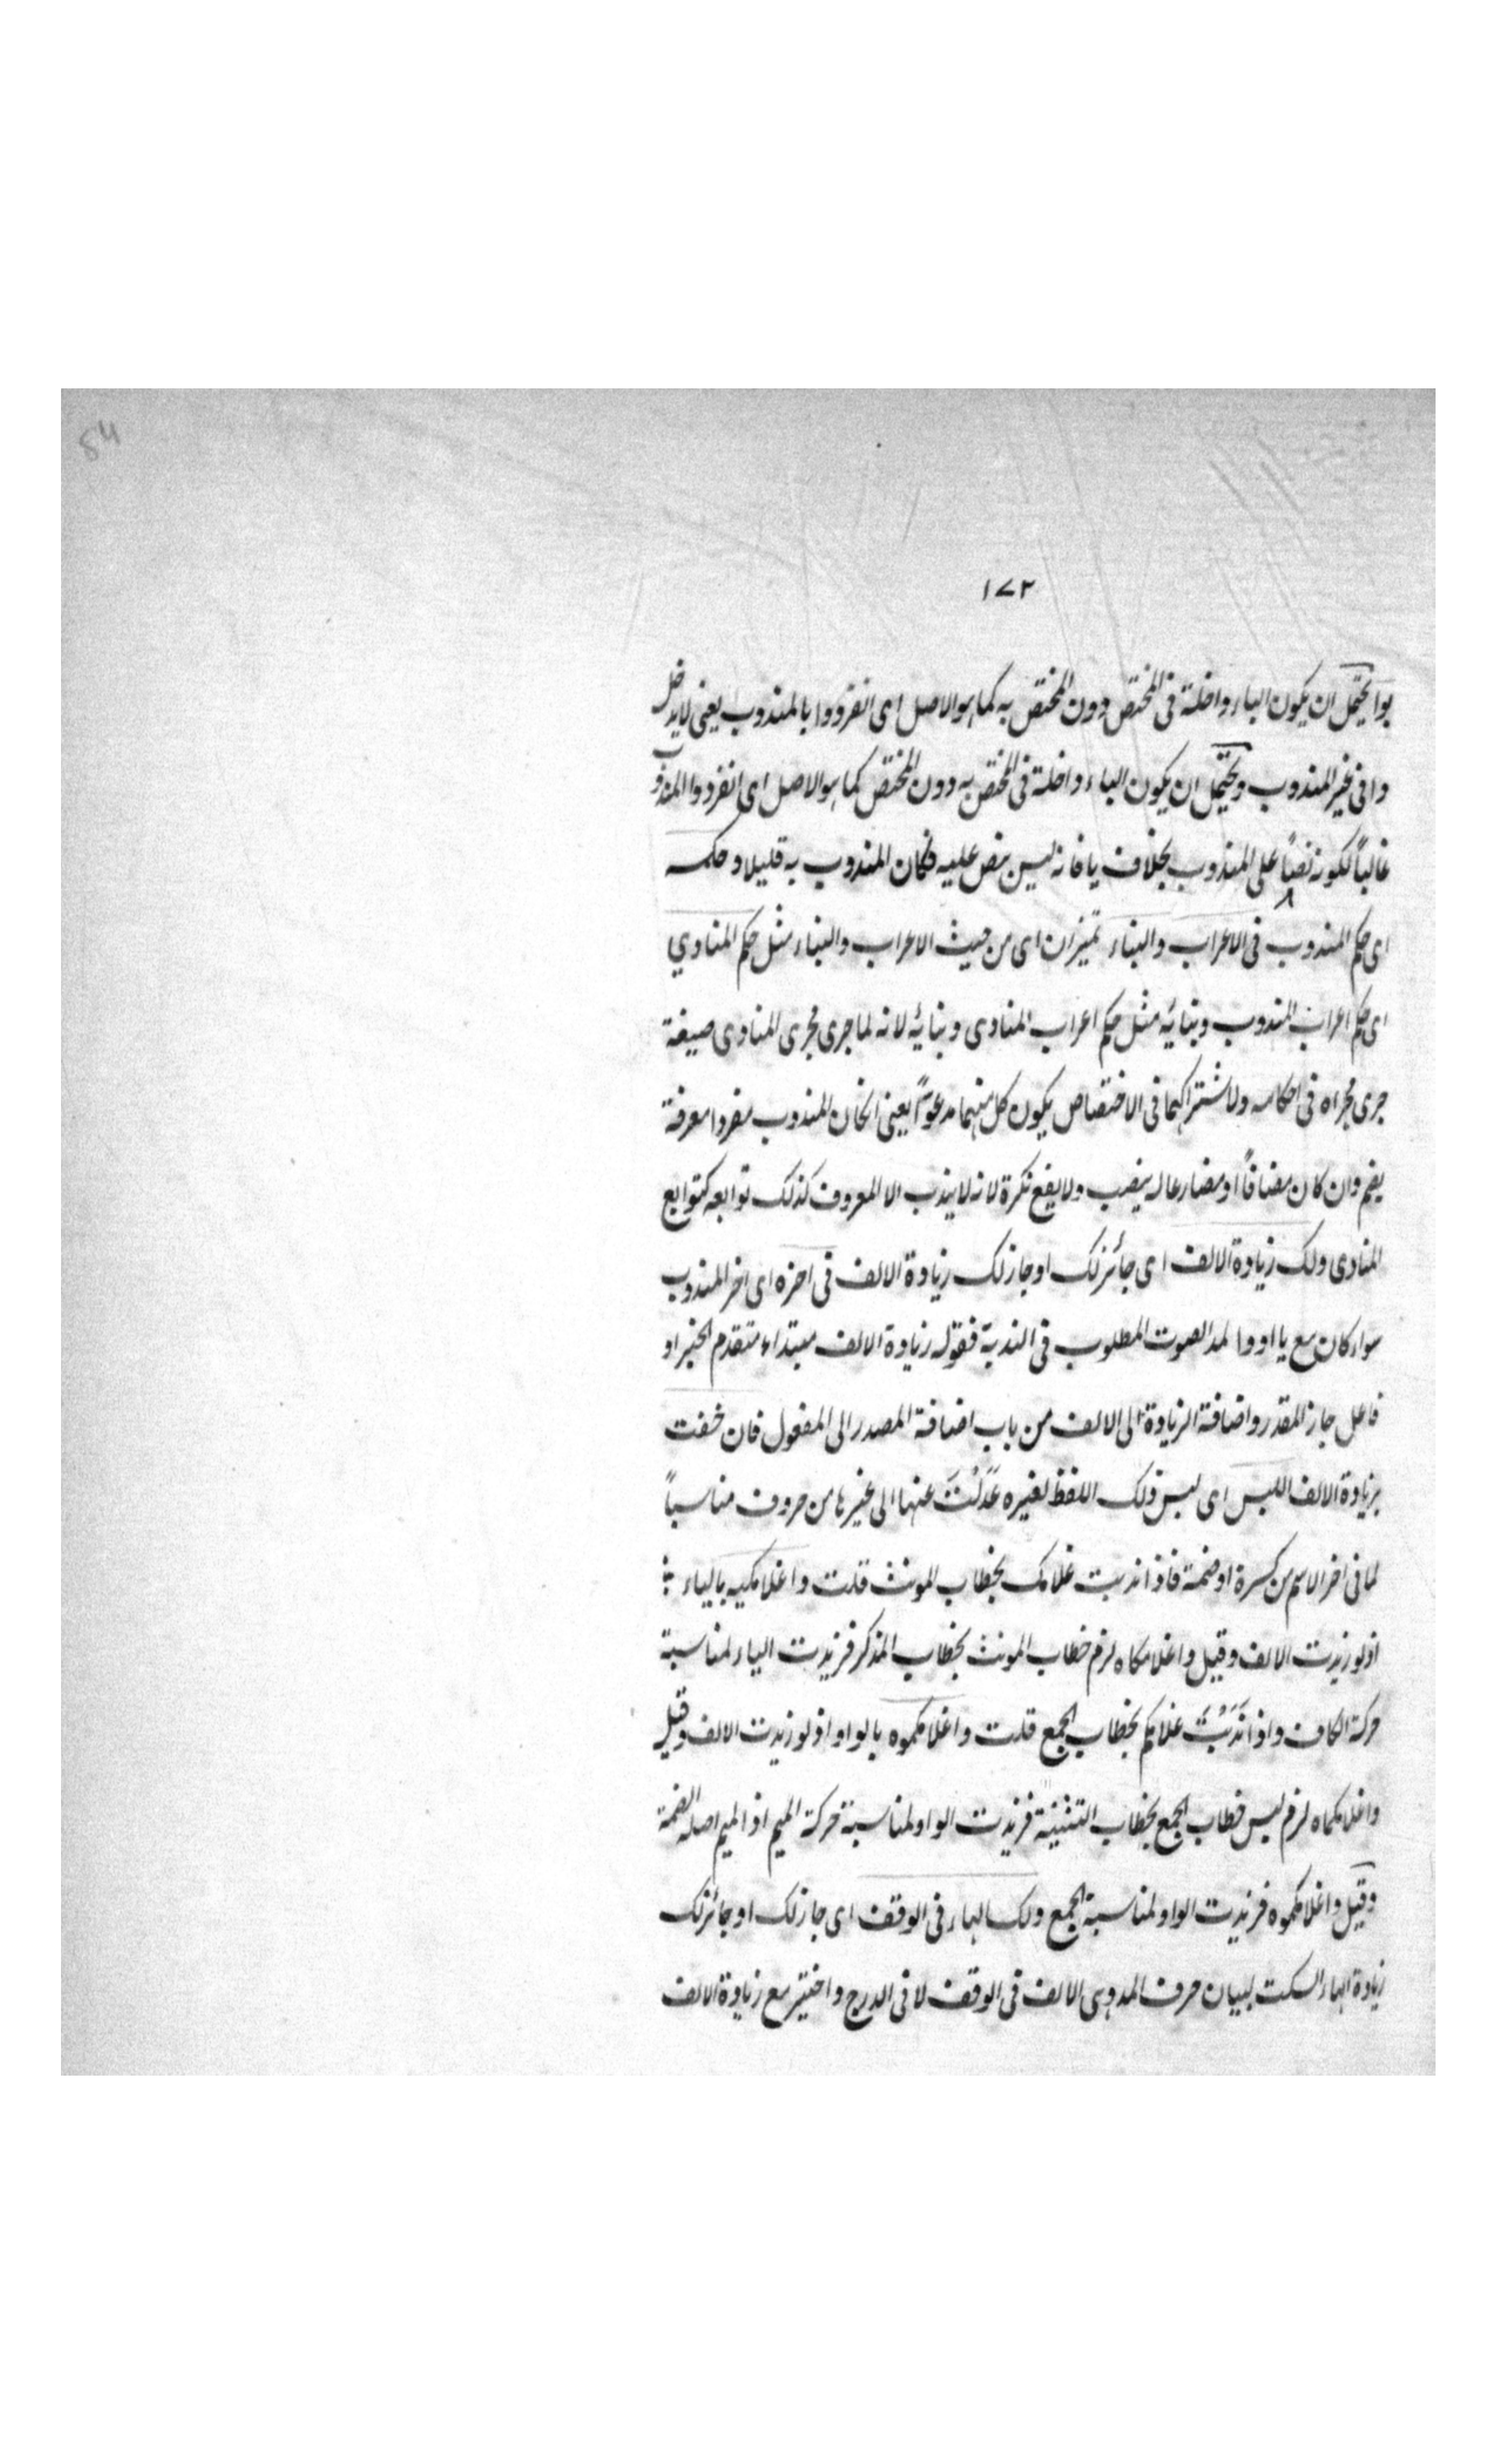 54
١٧٢
بوا يحتمل ان يكون الباء داخلة فى المختص دون المختص به كما هو الاصل اى انفردوا بالمندوب يعنى لا يدخل
وا فى غير المندوب ويحتمل ان يكون الباء داخلة فى المختص به دون المختص كما هو الاصل اى انفردوا المندوب
غالباً لكونه نصباً على المندوب بخلاف يا فانه ليس بنص عليه فكان المندوب به قليلا وحكمه
اى حكم المندوب فى الاعراب والبناء تميزان اى من حيث الاعراب والبناء مثل حكم المنادي
اى حكم اعراب المندوب وبنائه مثل حكم اعراب المنادى وبنائه لانه لما جرى مجرى المنادى صيغة
جرى مجراه فى احكامه ولاشتراكهما فى الاختصاص يكون كل منهما مدعوًا يعنى انكان المندوب مفردا معرفة
يضم وان كان مضافاً او مضارعا له ينصب ولا يقع نكرة لانه لا يندب الا المعروف كذلك توابعه كتوابع
المنادى ولك زيادة الالف اى جائز لك او جاز لك زيادة الالف فى اخره اى اخر المندوب
سواء كان مع يا او وا لمد الصوت المطلوب فى الندبة فقوله زيادة الالف مبتداء متقدم الخبر او
فاعل جاز المقدر واضافة الزيادة الى الالف من باب اضافة المصدر الى المفعول فان خفت
بزيادة الالف اللبس اى لبس ذلك اللفظ لغيره عَدَلْتَ عنها الى غيرها من حروف مناسباً
لما فى اخر الاسم من كسرة او ضمة فاذا ندبت غلامك بخطاب المونث قلت واغلامكيه بالياء ؛
اذ لو زيدت الالف وقيل واغلامكاه لزم خطاب المونث بخطاب المذكر فزيدت الياء لمناسبة
حركة الكاف واذا نَدَبْتَ غلامكم بخطاب الجمع قلت واغلامكموه بالواو اذ لو زيدت الالف وقيل
واغلامكماه لزم لبس خطاب الجمع بخطاب التثنية فزيدت الواو لمناسبة حركة الميم اذ الميم اصله الضمة
وقيل واغلامكموه فزيدت الواو لمناسبة الجمع ولك الهاء فى الوقف اى جاز لك او جائز لك
زيادة الهاء السكت لبيان حرف المد وهى الالف فى الوقف لا فى الدرج واختير مع زيادة الالف